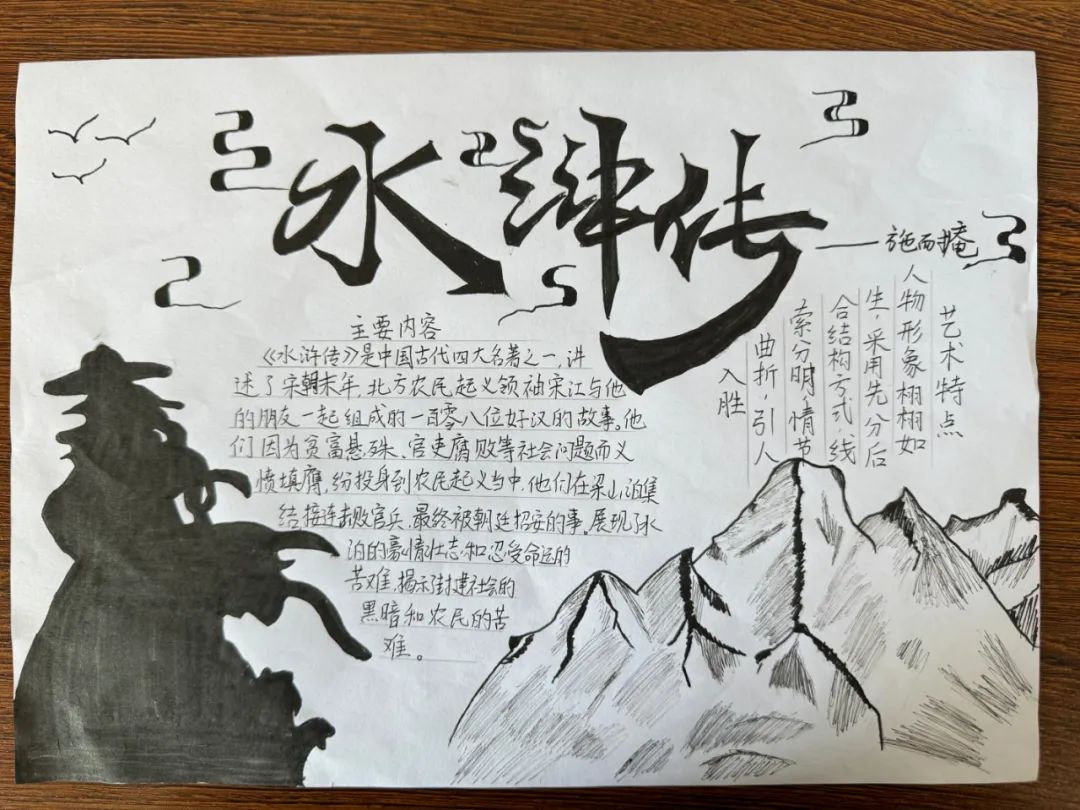 水浒传
——施而掩
主要内容
《水浒传》是中国古代四大名著之一，讲
述了宋朝末年，北方农民起义领袖宋江与他
的朋友一起组成的一百零八位好汉的故事。他
们因为贫富悬殊、官吏腐败等社会问题而义
愤填膺，纷投身到农民起义当中，他们在梁山泊集
结接连击败官兵、最终被朝廷招安的事。展现了水
泊的豪情壮志和忍受命运的
苦难，揭示了封建社会的
黑暗和农民的苦
难。
艺术特点
人物形象栩栩如
生，采用先分后
合结构方式，线
索分明，情节
曲折，引人
入胜